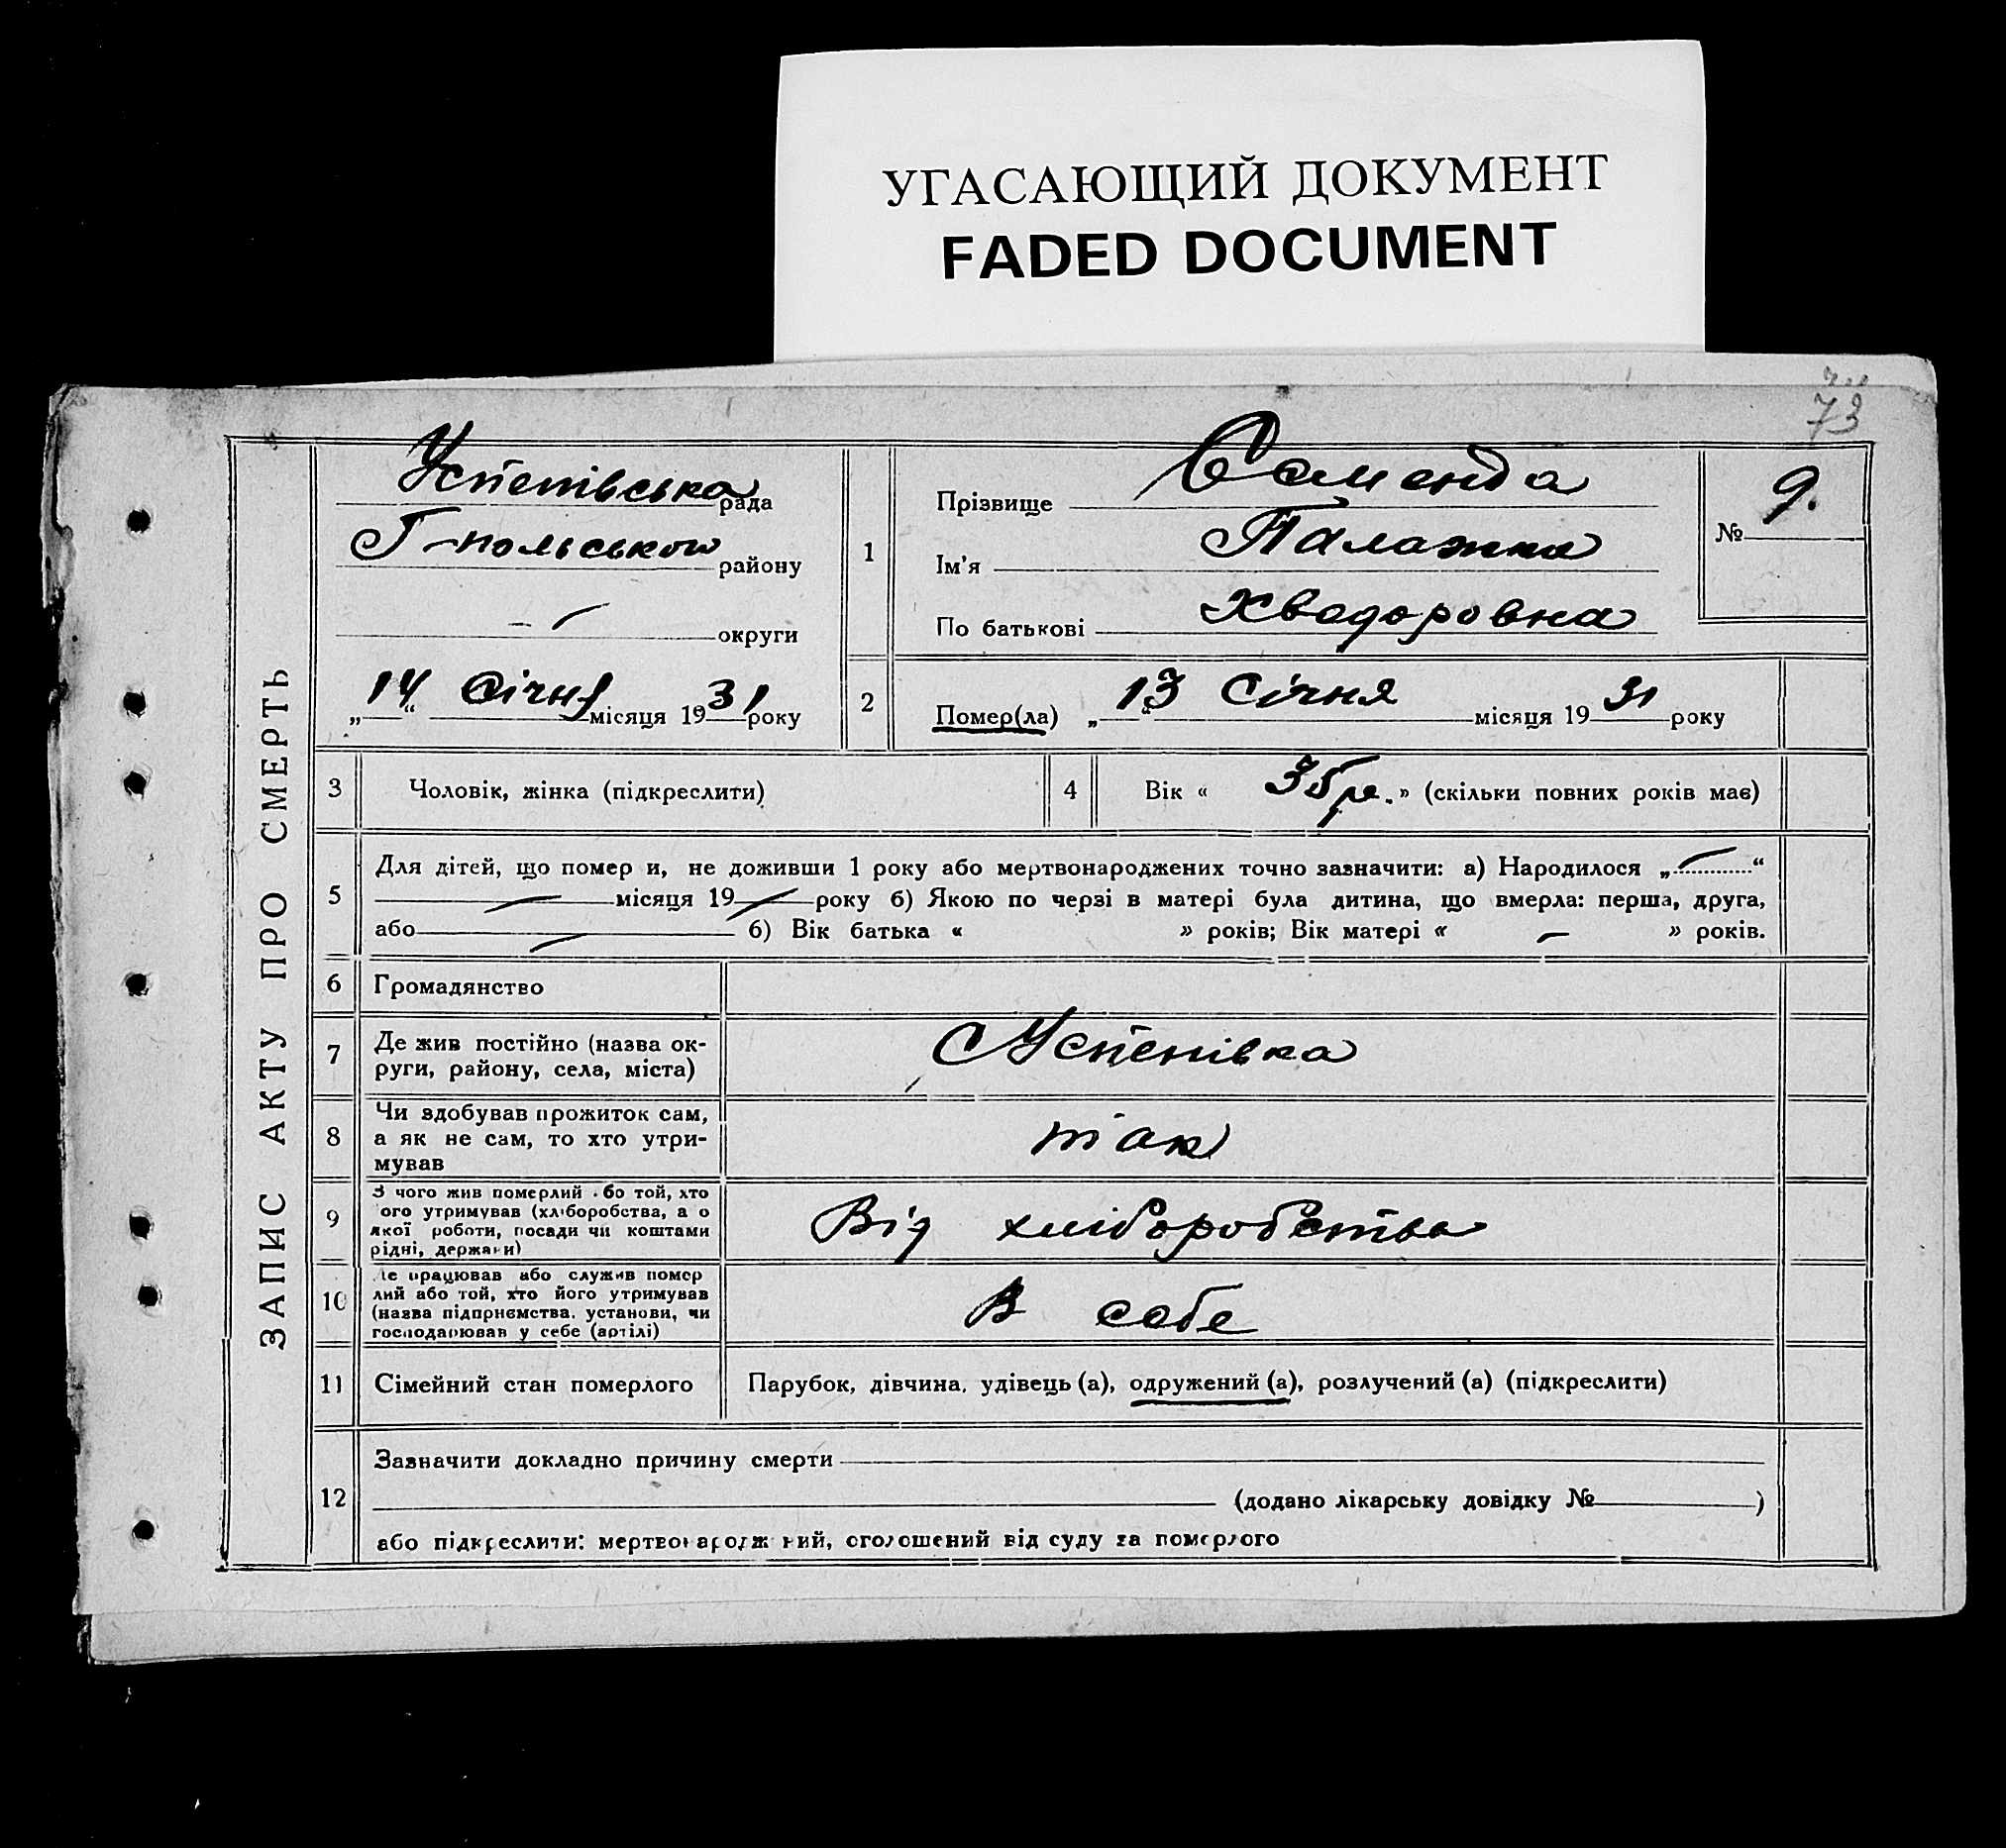 УГАСАЮЩИЙ ДОКУМЕНТ
FADED DOCUMENT
73
ЗАПИС АКТУ ПРО СМЕРТЬ
Успенівська рада
Г-польського району
— округи
„14“ Січня місяця 1931 року
1
Прізвище Саменда
Ім'я Палажка
По батькові Хведоровна
№ 9.
2
Помер(ла) „13“ Січня місяця 1931 року
3 Чоловік, жінка (підкреслити)
4 Вік « 35 р. » (скільки повних років має)
5
Для дітей, що помер и, не доживши 1 року або мертвонароджених точно зазначити: а) Народилося „—“
— місяця 19— року б) Якою по черзі в матері була дитина, що вмерла: перша, друга,
або — б) Вік батька « » років; Вік матері « — » років.
6 Громадянство
7 Де жив постійно (назва ок-
руги, району, села, міста)
С Успенівка
8 Чи здобував прожиток сам,
а як не сам, то хто утри-
мував
так
9 З чого жив померлий бо той, хто
ого утримував (хліборобства, а о
якої роботи, посади чи коштами
рідні, держави)
Від хліборобства
10 е працював або служив помер
лий або той, хто його утримував
(назва підприємства, установи, чи
господарював у себе (артілі)
В себе
11 Сімейний стан померлого
Парубок, дівчина, удівець (а), одружений (а), розлучений (а) (підкреслити)
12
Зазначити докладно причину смерти
(додано лікарську довідку № )
або підкреслити: мертвонароджений, оголошений від суду за померлого